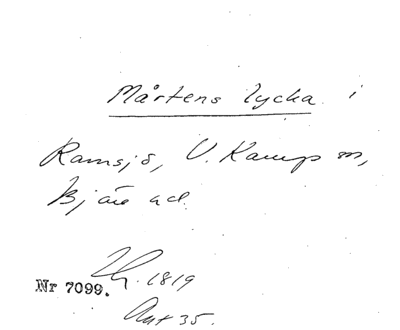 Mårtens lycka i
Ramsjö, V. Karups sn,
Bjäre hd.
Nr 7099. 1819
Ant 35.